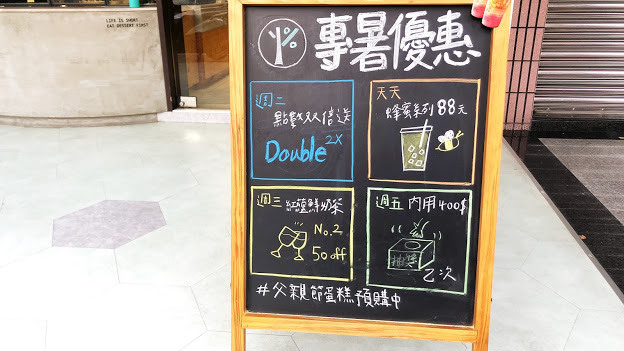 LIFE IS SHORT
EAT DESSERT FIRST
專暑優惠
週二
點數双倍送
Double 2X
天天
蜂蜜系列 88元
週三 紅蘊鮮奶茶
No.2
50 off
週五 內用400$
抽獎
乙次
#父親節蛋糕預購中